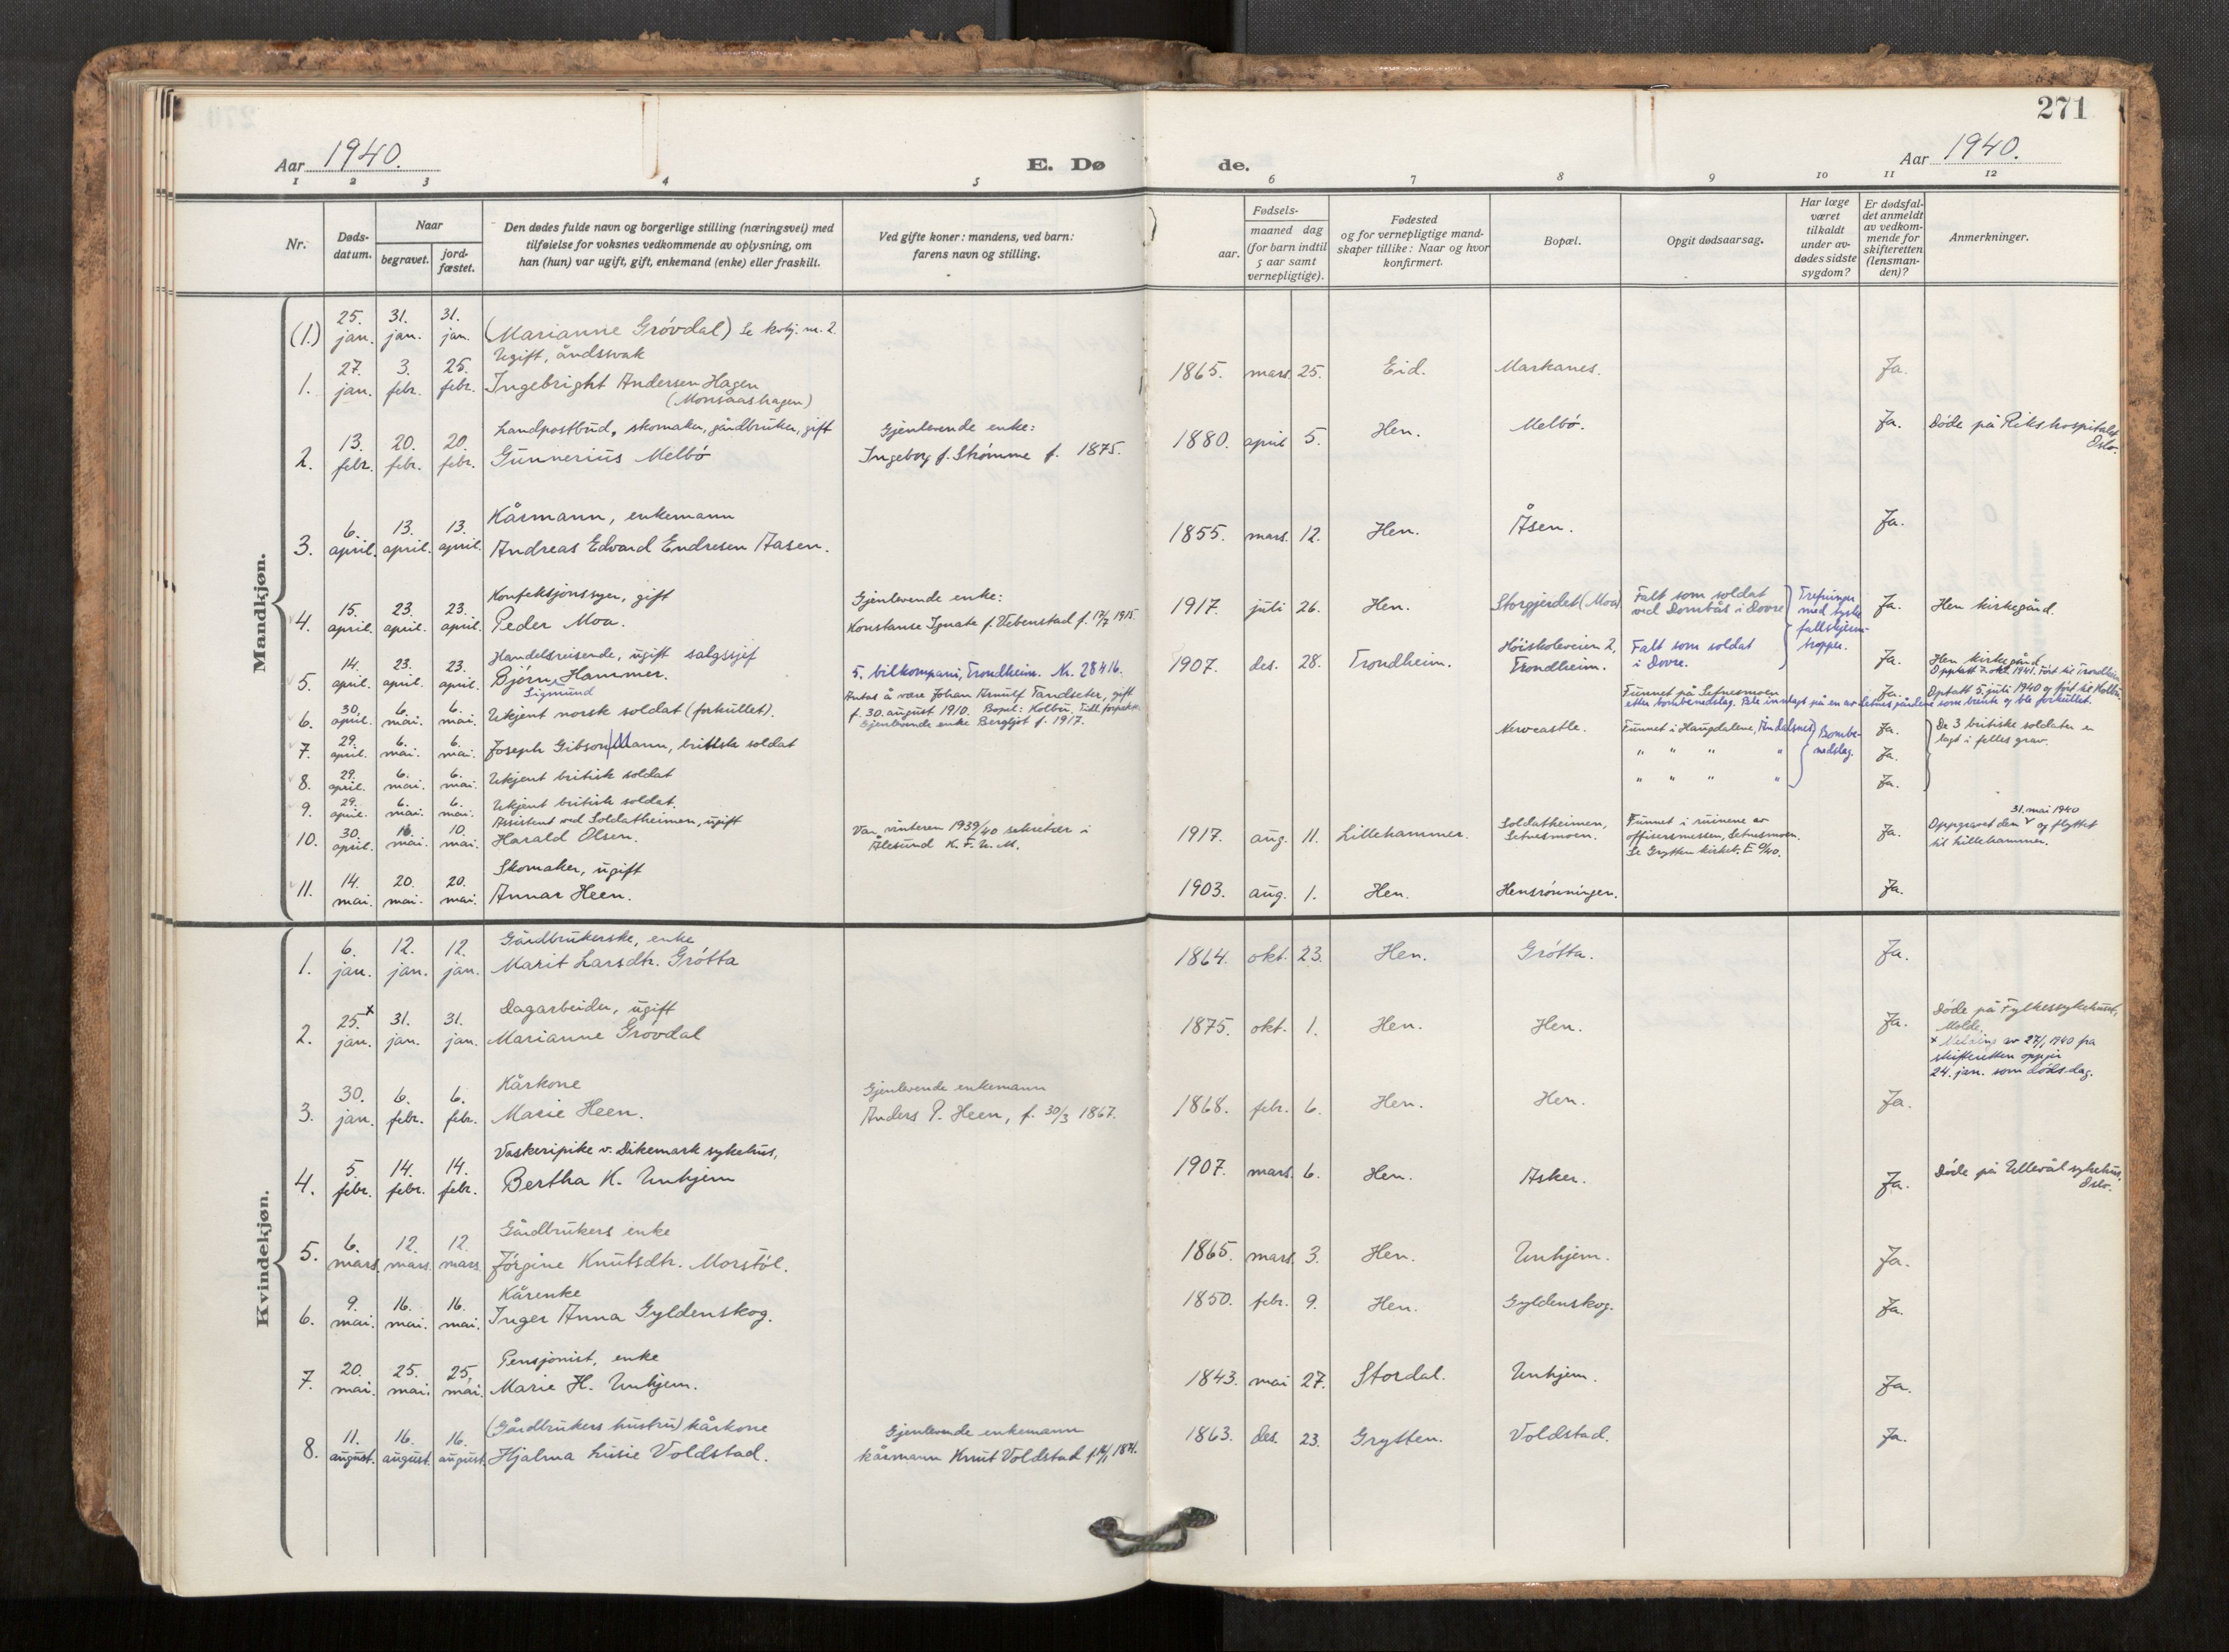 271
Aar 1940.
E. Dø
de.
Aar 1940.
1 2 3 4 5 6 7 8 9 10 11 12
Nr.
Døds-
datum.
Naar
begravet.
jord-
fæstet.
Den dødes fulde navn og borgerlige stilling (næringsvei) med
tilføielse for voksnes vedkommende av oplysning, om
han (hun) var ugift, gift, enkemand (enke) eller fraskilt.
Ved gifte koner: mandens, ved barn:
farens navn og stilling.
Fødsels-
aar.
maaned dag
(for barn indtil
5 aar samt
vernepligtige).
Fødested
og for vernepligtige mand-
skaper tillike: Naar og hvor
konfirmert.
Bopæl.
Opgit dødsaarsag.
Har læge
været
tilkaldt
under av-
dødes sidste
sygdom?
Er dødsfal-
det anmeldt
av vedkom-
mende for
skifteretten
(lensman-
den)?
Anmerkninger.
Mandkjøn.
(1.) 25. jan. 31. jan. 31. jan. (Marianne Grövdal) Se kvkj. nr. 2.
Ugift, åndssvak
1. 27. jan. 3. febr. 25. febr. Ingebright Andersen Hagen
(Monsaashagen)
1865. mars. 25. Eid. Markanes. Ja.
Landpostbud, skomaker, gårdbruker, gift
2. 13. febr. 20. febr. 20. febr. Gunnerius Melbö
Gjenlevende enke:
Ingeborg f. Strømme f. 1875.
1880. april 5. Hen. Melbö. Ja. Döde på Rikshospitalet
Oslo.
Kårmann, enkemann
3. 6. april. 13. april. 13. april. Andreas Edvard Endresen Aasen.
1855. mars. 12. Hen. Åsen. Ja.
Konfeksjonssyer, gift
4. 15. april. 23. april. 23. april. Peder Moa.
Gjenlevende enke:
Konstanse Agnate f. Vebenstad f. 17/7 1915.
1917. juli 26. Hen. Storgjerdet (Moa)
Falt som soldat
ved Dombås i Dovre
Trefninger
med tyske
fallskjerm-
tropper.
Ja. Hen kirkegård.
Handelsreisende, ugift salgssjef
5. 14. april. 23. april. 23. april. Björn Hammer.
Sigmund
5. bilkompani, Trondheim. Nr. 28416.
1907. des. 28. Trondheim. Höiskoleveien 2,
Trondheim.
Falt som soldat
i Dovre.
Ja. Hen kirkegård
Opptatt 7. okt. 1941. Fört til Trondheim
6. 30. april. 6. mai. 6. mai. Ukjent norsk soldat (forkullet).
Antas å være Johan Arnulf Tandseter, gift
f. 30. august 1910. Bopæl: Kolbu.
Gjenlevende enke Bergljot f. 1917.
Funnet på Setnesmoen
etter bombenedslag. Ble innlagt på en av Setnesgårdene som brente og ble forkullet.
Ja. Opptatt 5. juli 1940 og fört til Kolbu.
7. 29. april. 6. mai. 6. mai. Joseph Gibson Mann, britisk soldat
Newcastle. Funnet i Haugdalene, Åndalsnes
Bombe-
nedslag.
Ja. De 3 britiske soldater er
lagt i felles grav.
8. 29. april. 6. mai. 6. mai. Ukjent britisk soldat
" " " " Ja.
9. 29. april. 6. mai. 6. mai. Ukjent britisk soldat.
" " " " Ja.
Assistent ved Soldatheimen, ugift
10. 30. april. 10. mai. 10. mai. Harald Olsen.
Var vinteren 1939/40 sekretær i
Ålesund K. F. U. M.
1917. aug. 11. Lillehammer. Soldatheimen,
Setnesmoen.
Funnet i ruinene av
offisersmessen, Setnesmoen.
Se Grytten kirkeb.
Ja. Oppgravet den 31. mai 1940 og flyttet
til Lillehammer.
Skomaker, ugift
11. 14. mai. 20. mai. 20. mai. Annar Heen.
1903. aug. 1. Hen. Hensrönningen. Ja.
Kvindekjøn.
Gårdbrukerske, enke
1. 6. jan. 12. jan. 12. jan. Marit Larsdtr. Grötta
1864. okt. 23. Hen. Grötta. Ja.
Dagarbeider, ugift
2. 25.x jan. 31. jan. 31. jan. Marianne Grövdal
1875. okt. 1. Hen. Hen. Ja. Döde på Fylkessykehuset,
Molde.
x Melding av 27/1 1940 fra
skifteretten oppgir
24. jan. som dödsdag.
Kårkone
3. 30. jan. 6. febr. 6. febr. Marie Heen.
Gjenlevende enkemann
Anders P. Heen, f. 30/3 1867.
1868. febr. 6. Hen. Hen. Ja.
Vaskeripike v. Dikemark sykehus,
4. 5. febr. 14. febr. 14. febr. Bertha K. Unhjem
1907. mars. 6. Hen. Asker. Ja. Döde på Ullevål sykehus,
Oslo.
Gårdbrukers enke
5. 6. mars. 12. mars. 12. mars. Jörgine Knutsdtr. Morstöl.
1865. mars. 3. Hen. Unhjem. Ja.
Kårenke
6. 9. mai. 16. mai. 16. mai. Inger Anna Gyldenskog.
1850. febr. 9. Hen. Gyldenskog. Ja.
Pensjonist, enke
7. 20. mai. 25. mai. 25. mai. Marie H. Unhjem.
1843. mai 27. Stordal. Unhjem. Ja.
(Gårdbrukers hustru) kårkone
8. 11. august. 16. august. 16. august. Hjalma Lusie Voldstad.
Gjenlevende enkemann
kårmann Knut Voldstad f. 1871.
1863. des. 23. Grytten. Voldstad. Ja.